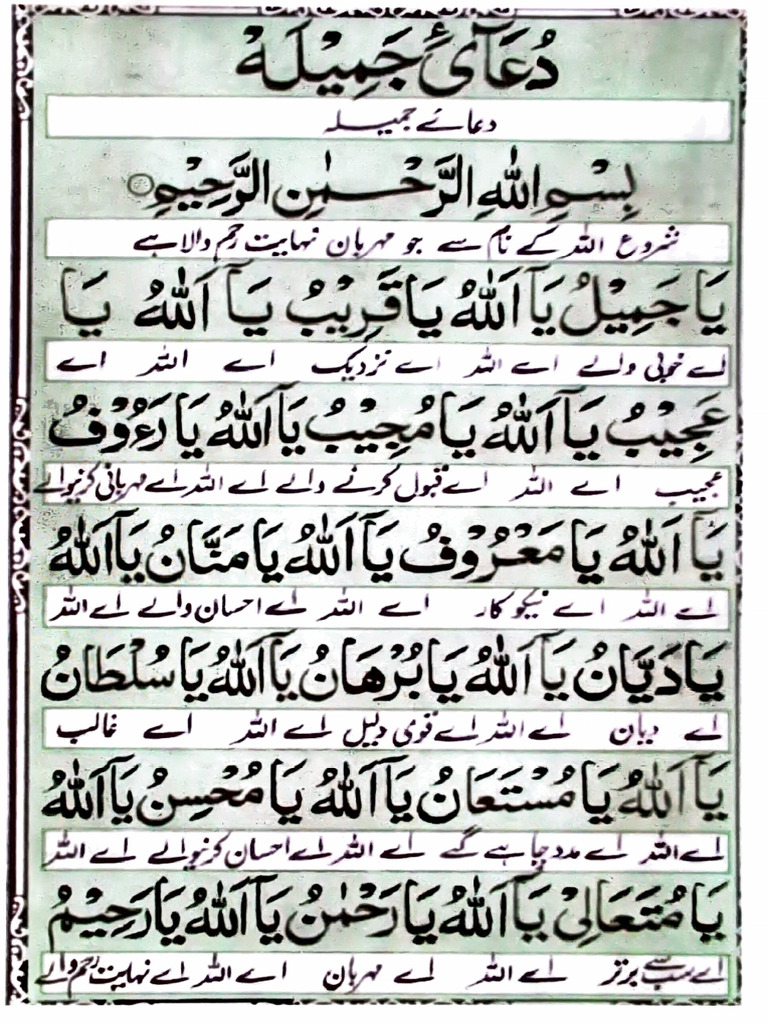 دُعَآئِ جَمِيْلَهْ
دعائے جمیلہ
بِسْمِ اللهِ الرَّحْمٰنِ الرَّحِيْمِ
شروع اللہ کے نام سے جو مہربان نہایت رحم والا ہے
يَا جَمِيْلُ يَآ اَللهُ يَا قَرِيْبُ يَآ اَللهُ يَا
اے خوبی والے اے اللہ اے نزدیک اے اللہ اے
عَجِيْبُ يَآ اَللهُ يَا مُجِيْبُ يَآ اَللهُ يَا رَءُوْفُ
عجیب اے اللہ اے قبول کرنے والے اے اللہ اے مہربانی کرنیوالے
يَآ اَللهُ يَا مَعْرُوْفُ يَآ اَللهُ يَا مَنَّانُ يَآ اَللهُ
اے اللہ اے نیکو کار اے اللہ اے احسان والے اے اللہ
يَا دَيَّانُ يَآ اَللهُ يَا بُرْهَانُ يَآ اَللهُ يَا سُلْطَانُ
اے دیان اے اللہ اے قوی دلیل اے اللہ اے غالب
يَآ اَللهُ يَا مُسْتَعَانُ يَآ اَللهُ يَا مُحْسِنُ يَآ اَللهُ
اے اللہ اے مدد چاہے گئے اے اللہ اے احسان کرنیوالے اے اللہ
يَا مُتَعَالِیْ يَآ اَللهُ يَا رَحْمٰنُ يَآ اَللهُ يَا رَحِيْمُ
اے سب سے برتر اے اللہ اے مہربان اے اللہ اے نہایت رحم والے